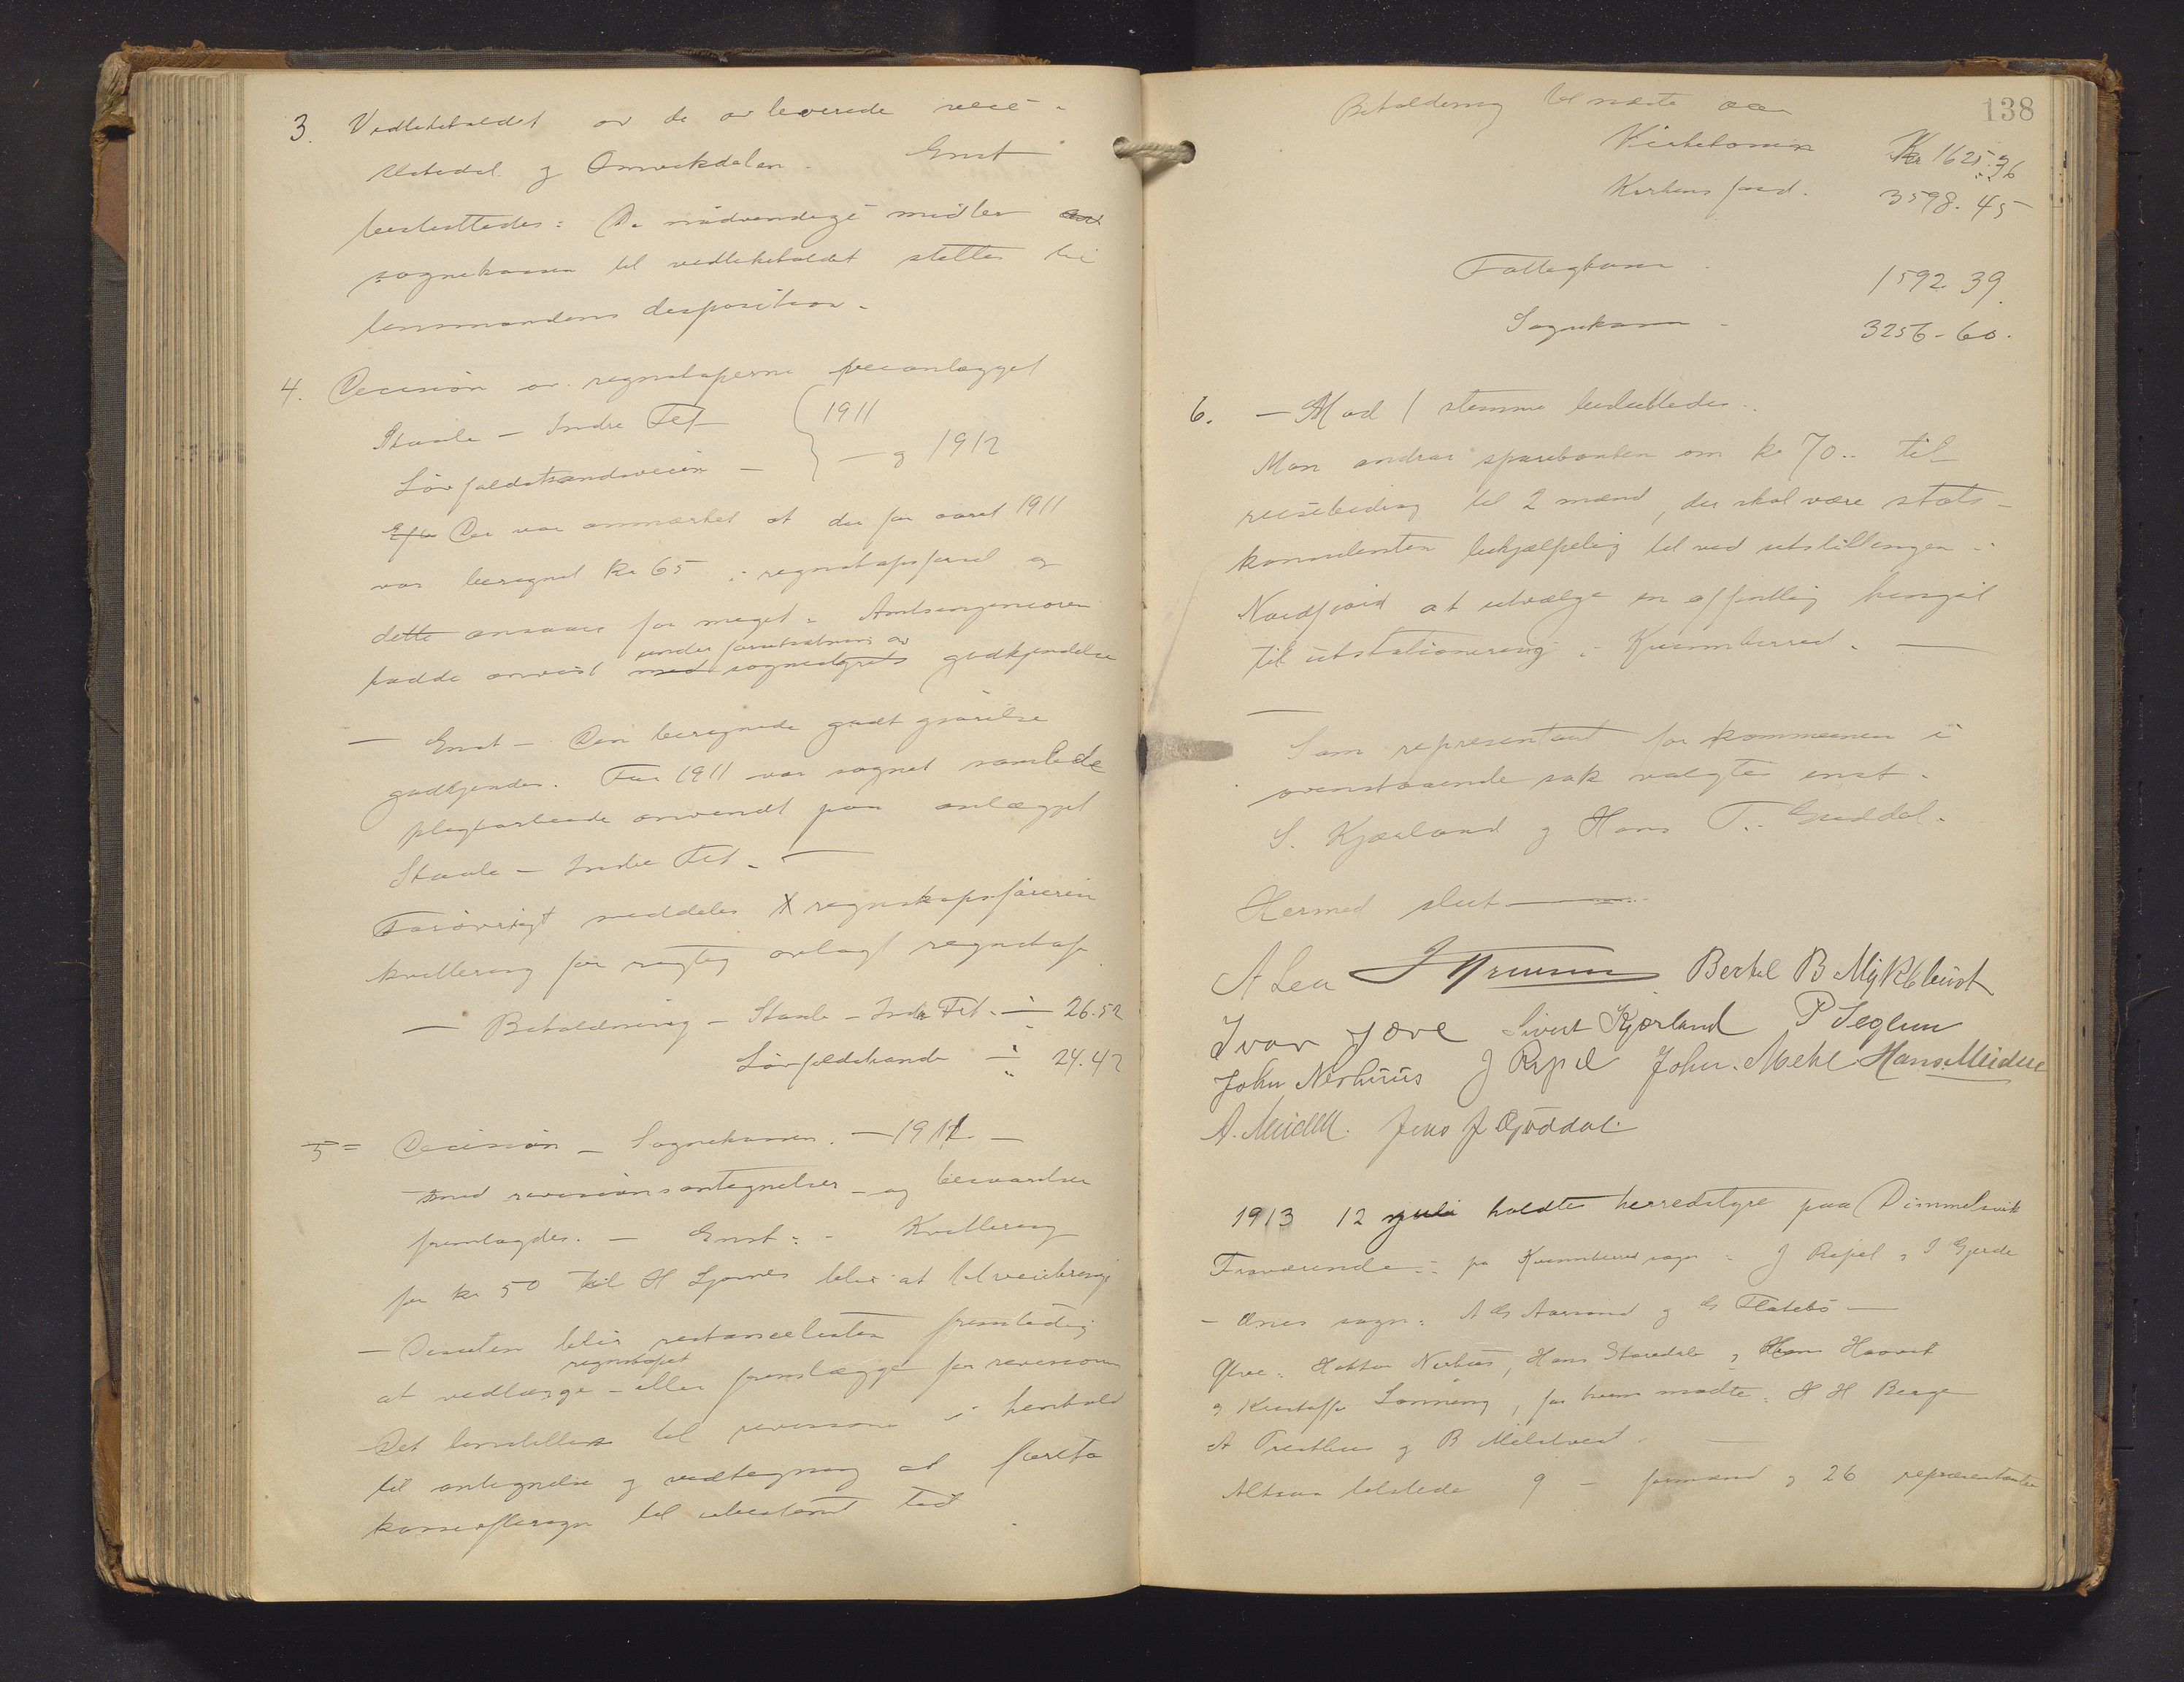 3. Vedlikeholdet av de avleverede veie i
Uskedal og Omvikdalen. Enst
besluttedes: De nödvendige midler av
sognekassen til vedlikeholdet stilles til
lensmandens disposition.
4. Decision av regnskaperne veianlægget
Staale – Indre Fet 1911
Lörfaldstrandsveien – – og 1912
Efter Der var anmærket at der for aaret 1911
var beregnet kr 65 i regnskapsförsel og
dette ansaaes for meget. Amtsingeniören
hadde anvist under forutsætning av
med sognestyrets godkjendelse
– Enst – Den beregnede godtgjörelse
godkjendes. For 1911 var sognet samlede
pligtarbeide anvendt paa anlægget
Staale – Indre Fet. –
Forövrigt meddeles regnskapsföreren
kvittering for rigtig avlagt regnskap
– Beholdning – Staale – Indre Fet. – 26.52
Lörfaldstrande – 24.42
5 = Decision – Sognekassen. – 1911 –
med revisionsantegnelser – og besvarelse
fremlagdes. – Enst: – Kvittering
for kr 50 til H blir at tilveiebringe
– Desuten blir restancelisten fremtidig
at vedlægge regnskapet – eller fremlægge for revisionen
Det henstilles til revisionen i henhold
til antegnelse og vedtagning at foreta
kasseeftersyn til ubestemt tid.
138
Beholdning til næste aar
Kirkekassen Kr 1625.36
Kirkens fond. 3598.45
Fattigkassen 1592.39
Sognekassen – 3256-60.
6. – Mod 1 stemme besluttedes.
Man andrar sparebanken om kr 70.. til
reisebidrag til 2 mænd, der skal være stats-
konsulenten behjælpelig til ved utstillingen i
Nordfjord at utvælge en offentlig hingst
til utstationering i Kvinnherred. –
Som representant for kommunen i
ovenstaaende sak valgtes enst.
S. Kjærland og Hans T. Guddal.
Hermed slut
A Lea Bertel B Myklebust
Ivar Jove Sivert Kjærland P Seglem
John Nerhuus J Røpel John. Mehl Hans. Meidell
A. Meidell. Jens J Gjöddal.
1913 12 juli holdtes herredstyre paa Dimmelsvik
Fraværende: fra Kvinnherred sogn: J Røpel, I Gjerde
– Ænes sogn: A G Aarsand og G Flatebö –
Ølve: Hans Storedale og Haavik
og Kristoffer Lönning, for hvem mödte: H H Berge
A Tresthus og B Mehlveit. –
Altsaa tilstede 9 – formænd og 26 repræsentanter